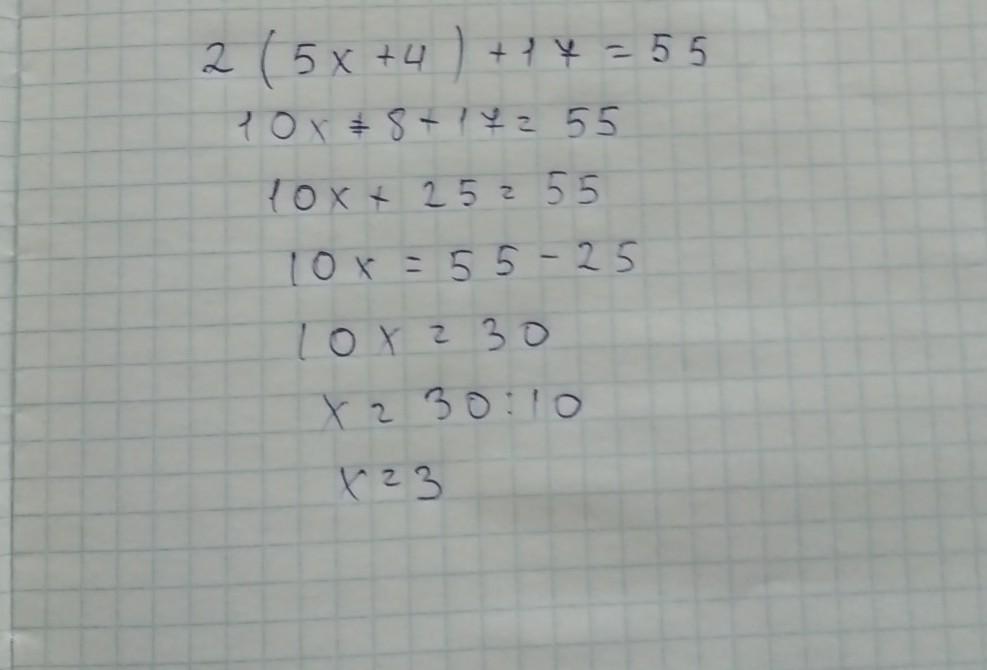 2 (5x+4) +17 = 55
10x+8+17= 55
10x+ 25= 55
10x = 55-25
10x = 30
x= 30:10
x=3